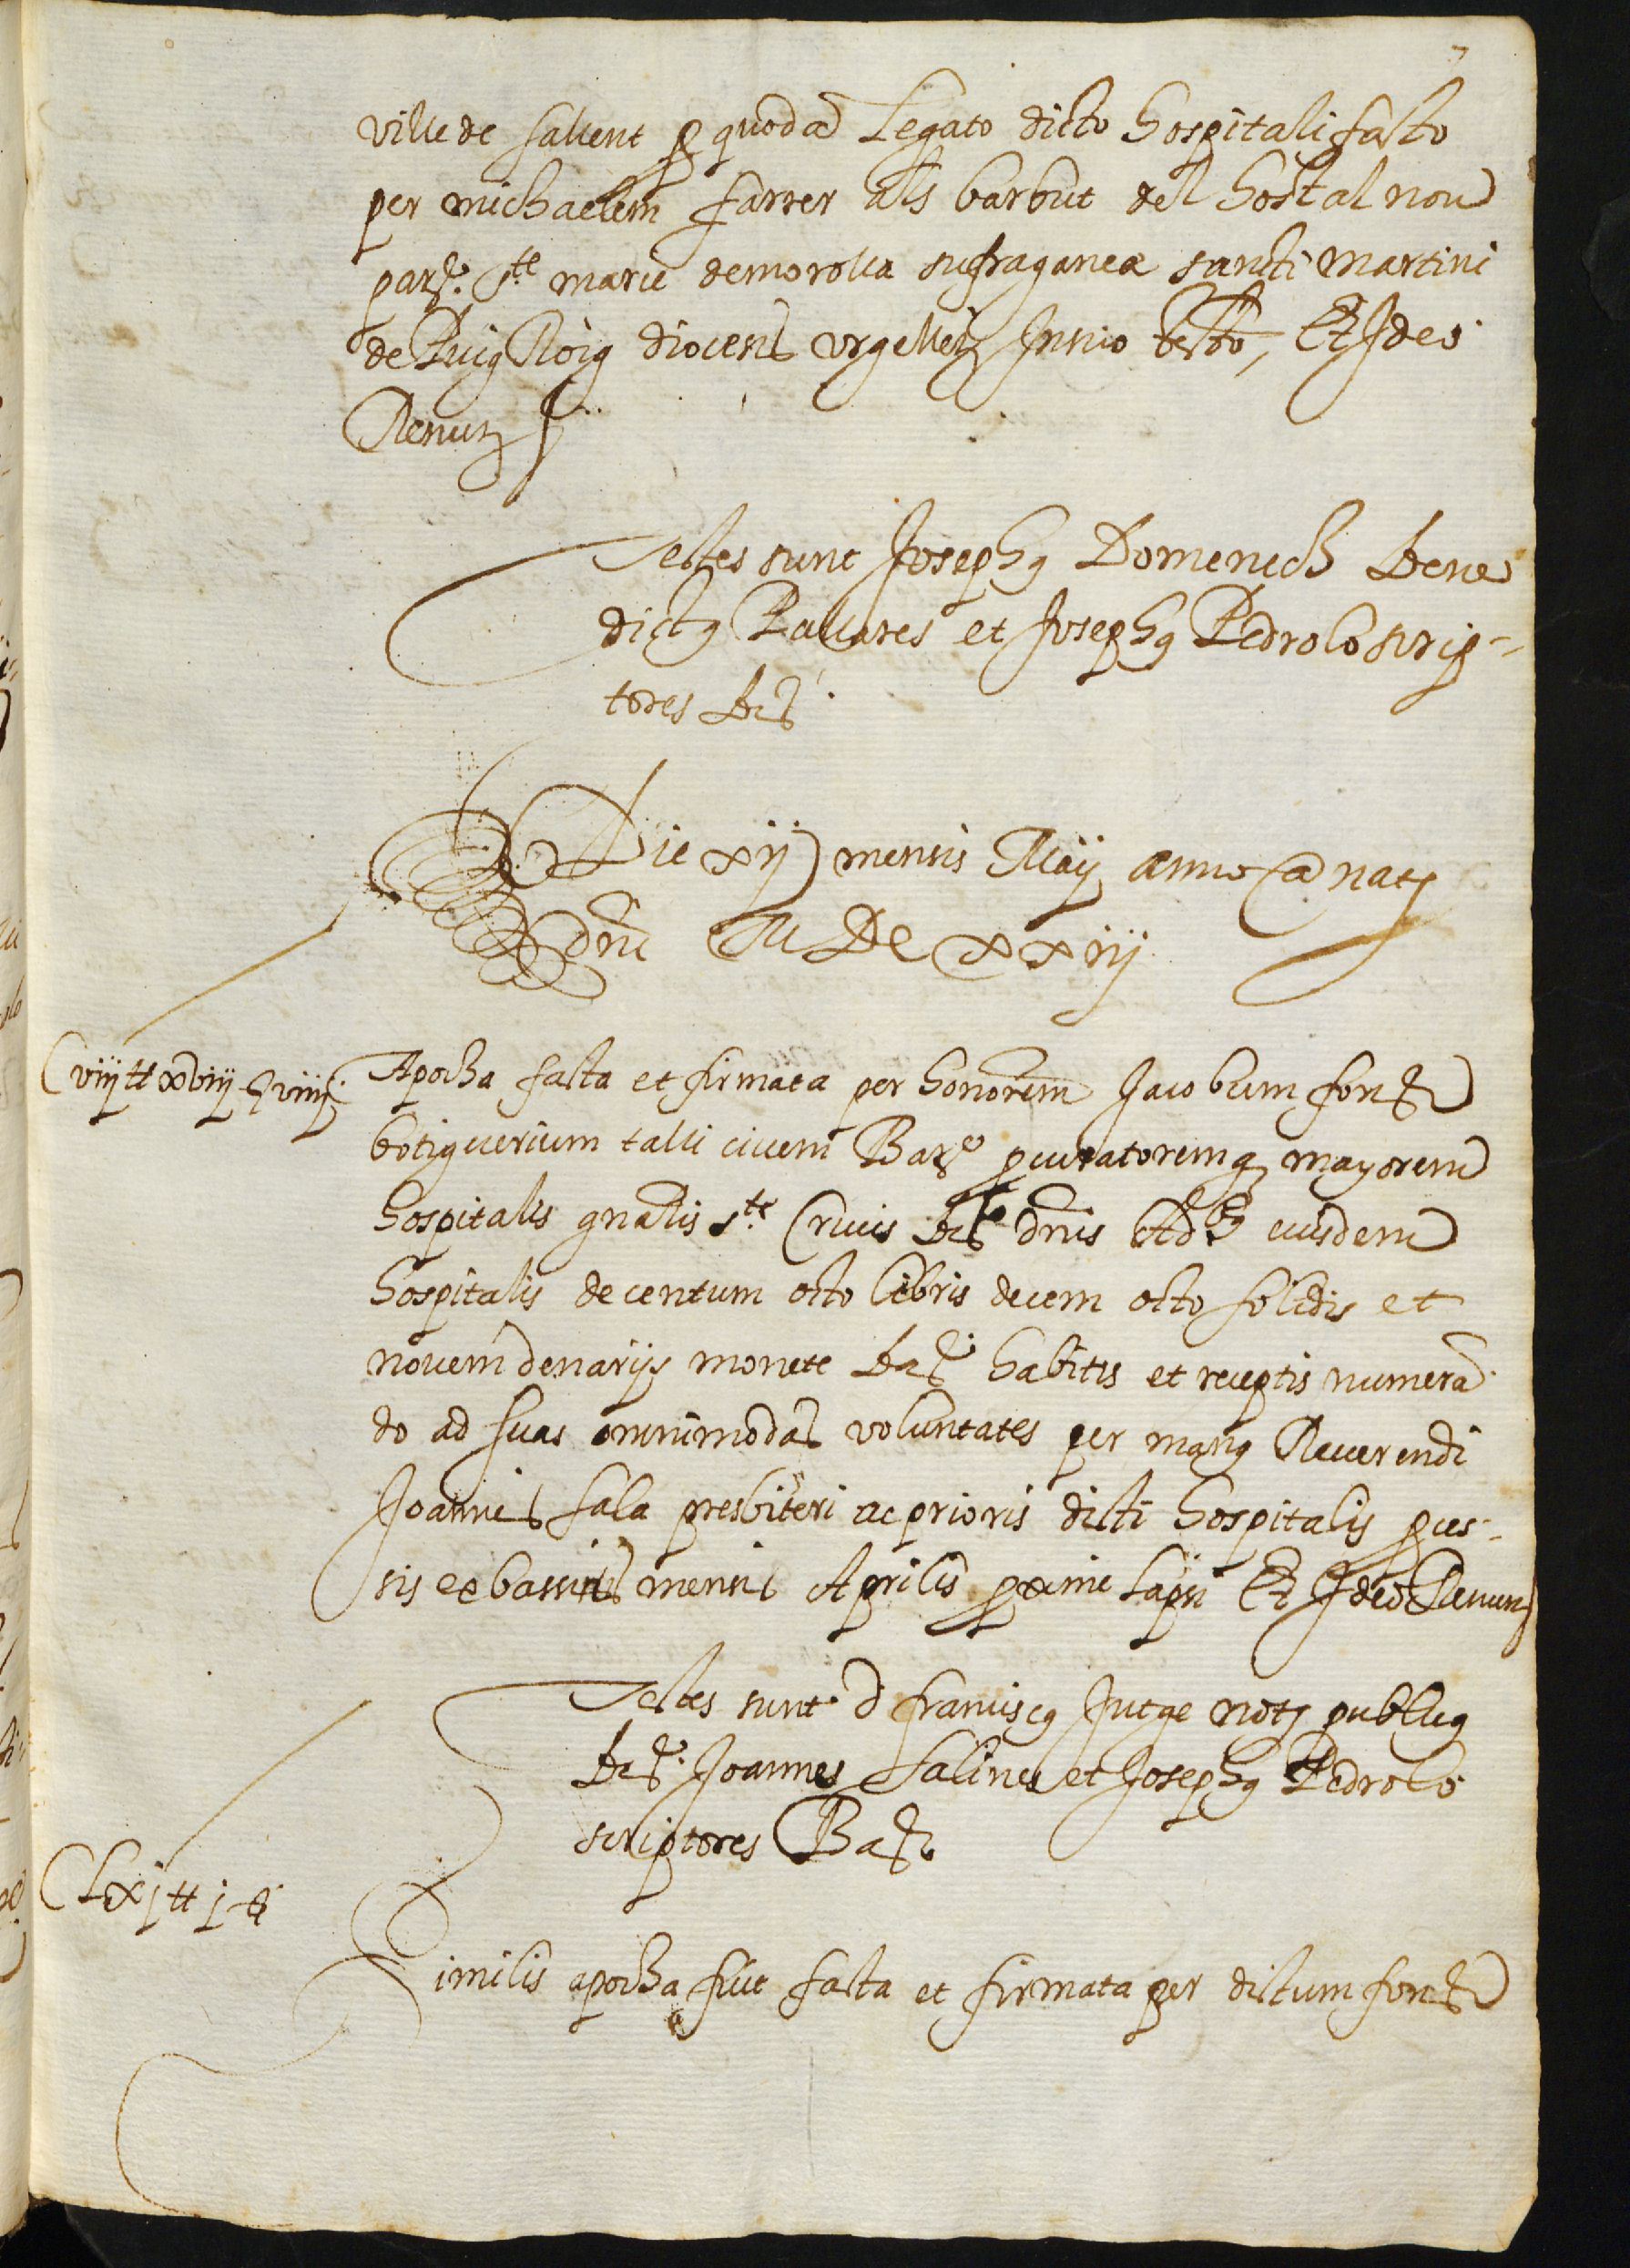 7
ville de sallent p quoda Legato dicto hospitali facto
per michaelem farrer als barbut del hostal nou
par.ª s.te marie de morolla sufraganea sancti Martini
de Puig Roig diocesis vrgellen in suo testo, Et Ideo
Renun
Testes sunt Josephq Domenech Bene
dictq Pallares et Josephq Pedrolo scrip-
tores Bar
Die xij mensis Maij anno a nat
dni M DC xxiij
Cviij tt xviij s viiij
Apocha facta et firmata per honorem Jacobum font
botiguerium talli civem Bar procuratoremq mayorem
hospitalis gnalis s.te Crucis Bar dnis Adb eiusdem
hospitalis de centum octo libris decem octo solidis et
novem denarijs monete Bar habitis et receptis numera
do ad suas omnimodas voluntates per manq Reverendi
Joannis sala presbiteri ac prioris dicti hospitalis proces-
sis ex bassinis mensis Aprilis proxime lapsi Et Ideo Renun
Testes sunt d franciscq Jutge not publicq
Bar Joannes Salines et Josephq Pedrolo
scriptores Bar
CLxj tt j s
Similis apocha fuit facta et firmata per dictum font